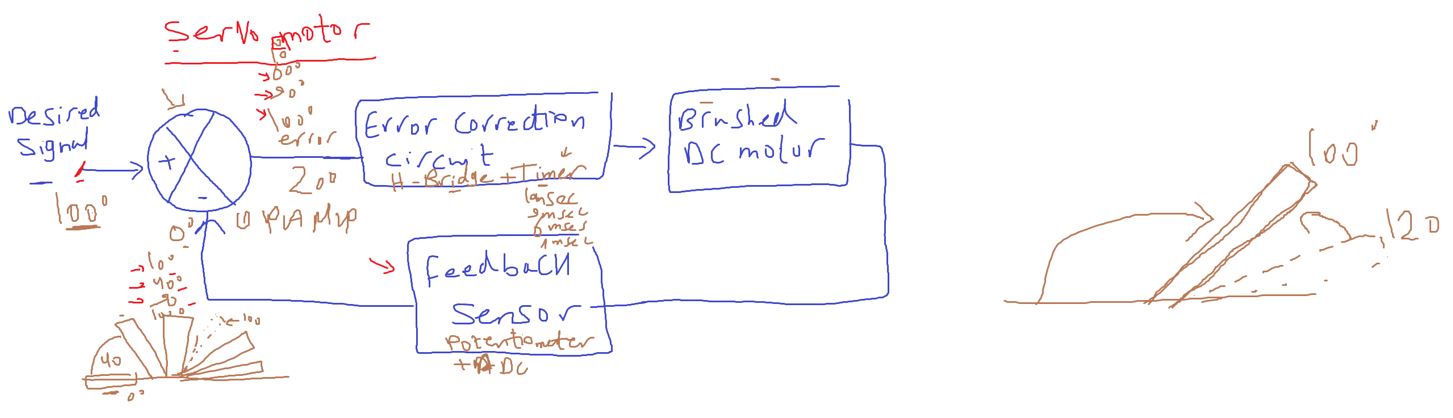 Servo motor
Desired
Signal
100°
+
-
-
0°
10
60°
90°
100°
error
200
Error correction
circuit
H-Bridge + Timer
10msec
9msec
6msec
1msec
Brushed
DC motor
Feedback
Sensor
potentiometer
+ADC
10°
40°
90
100°
100
40
0°
100°
120